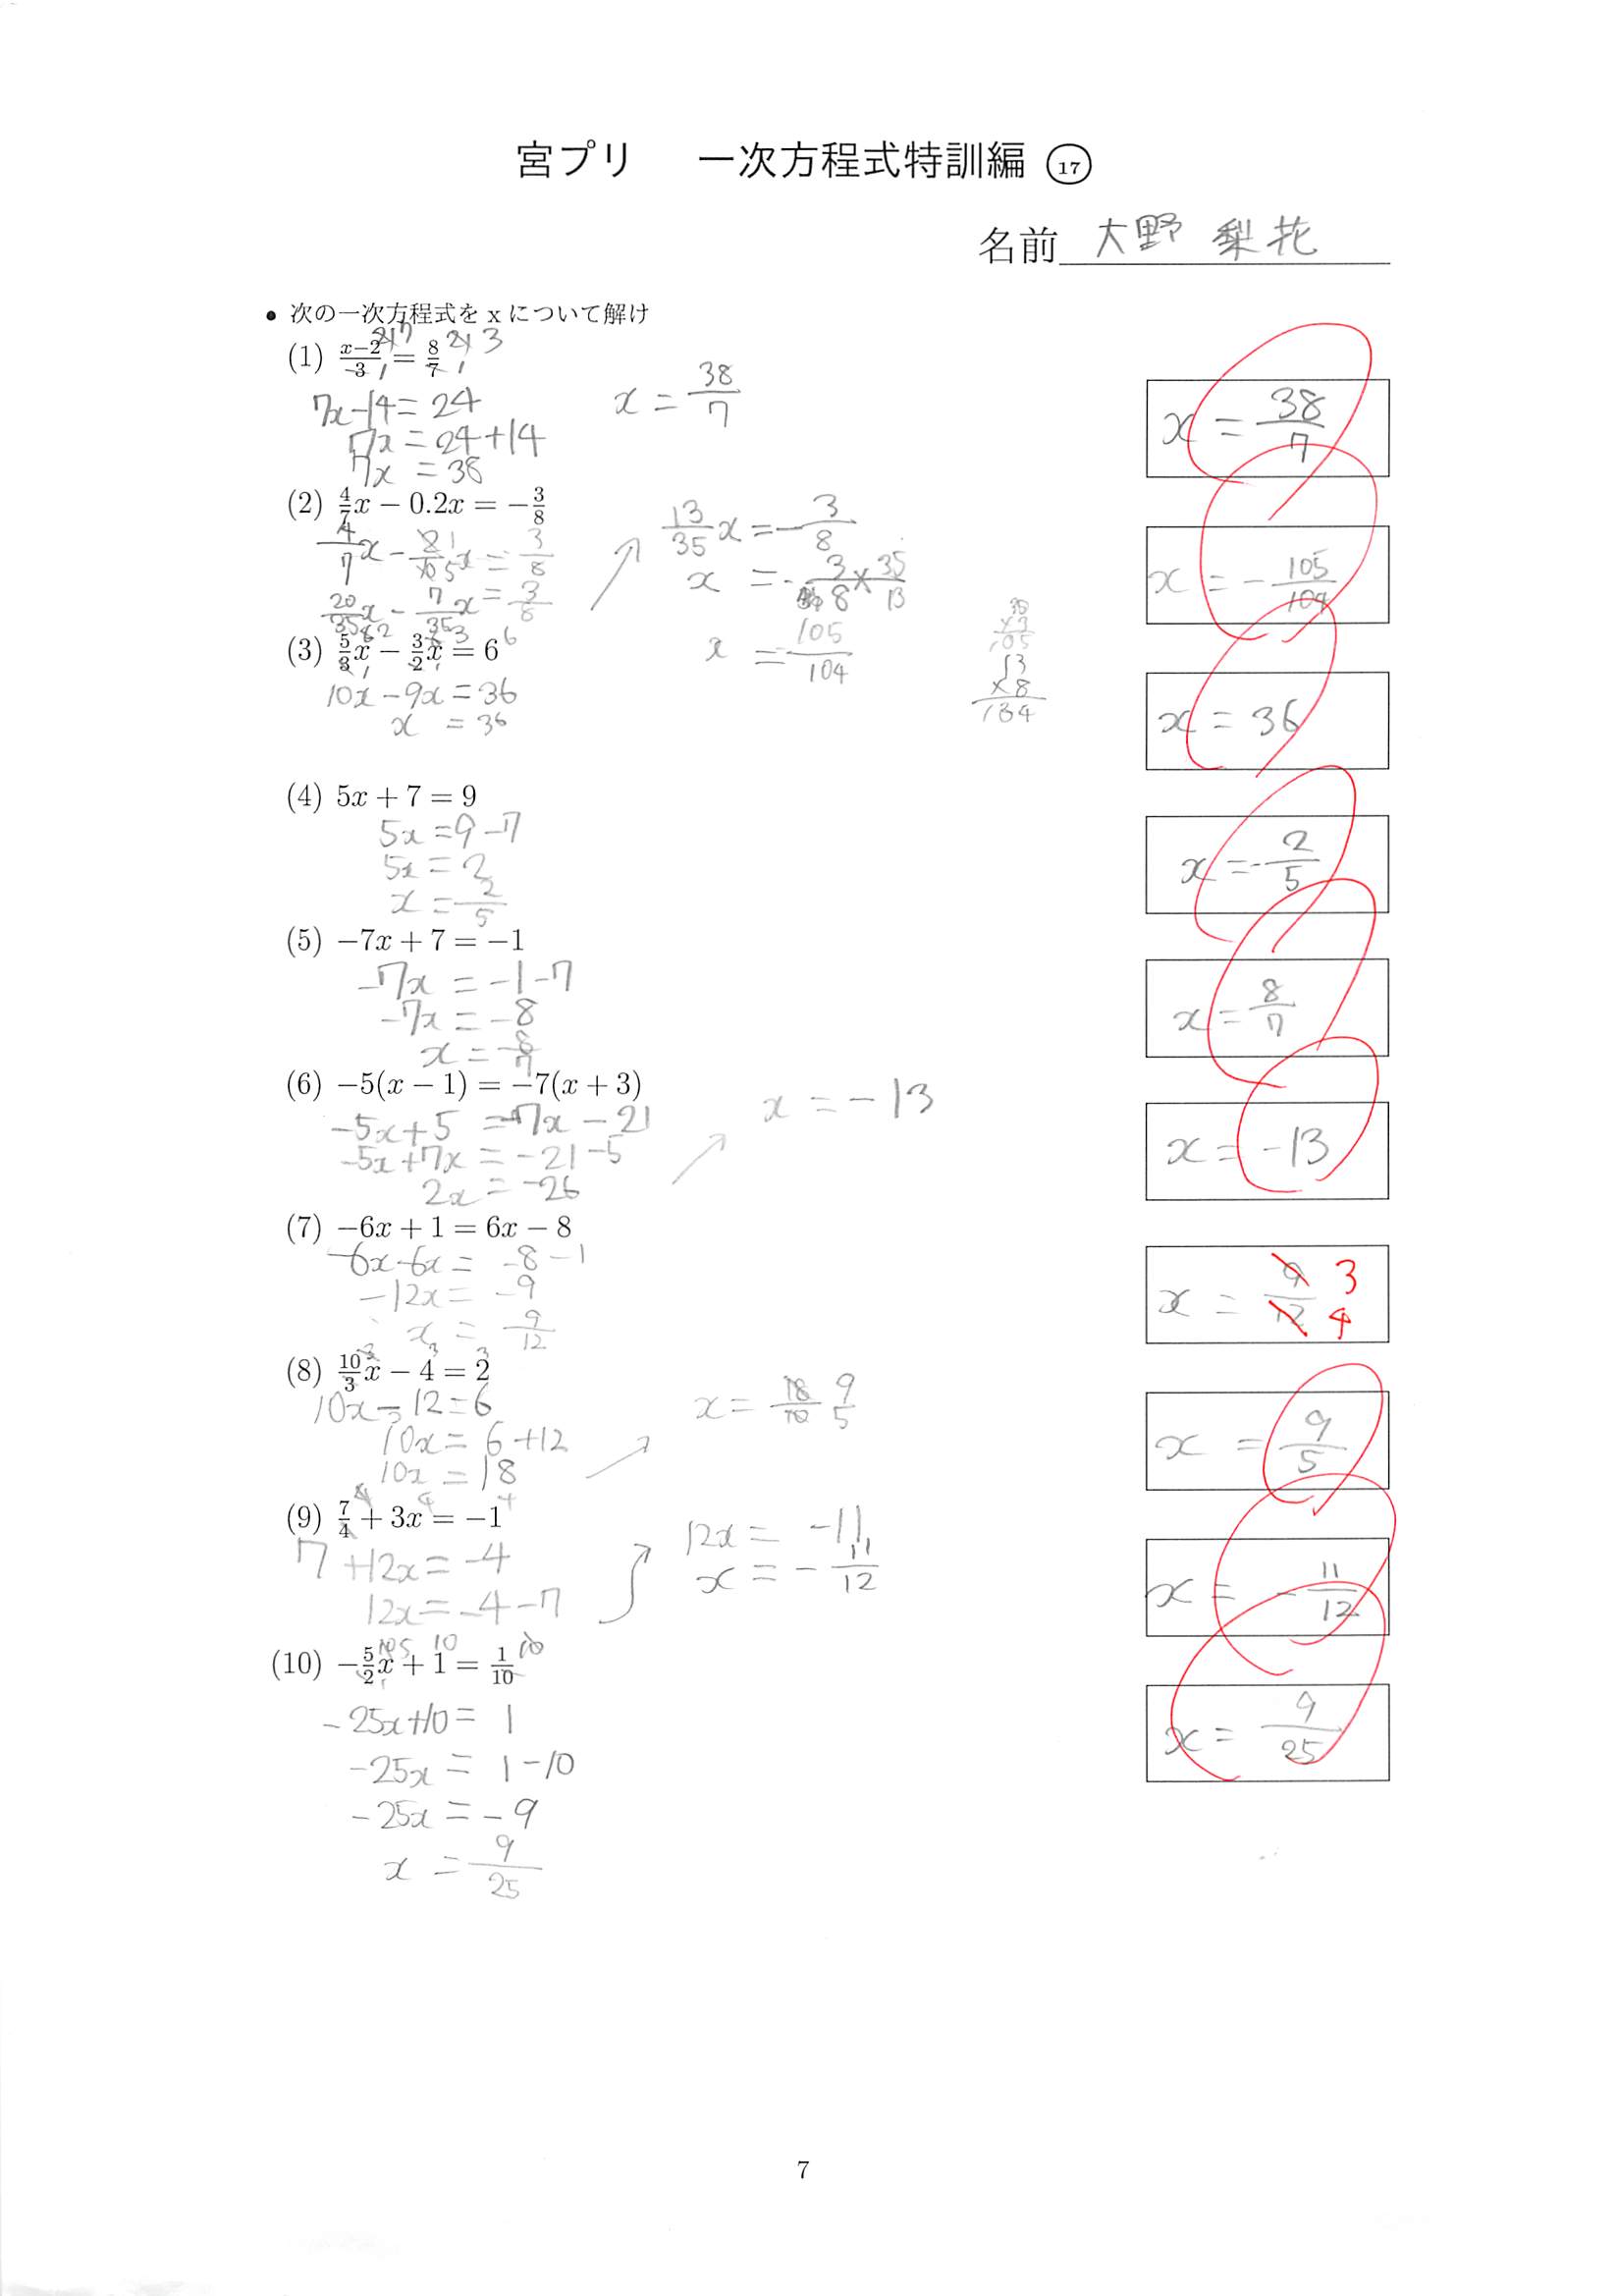 宮プリ 一次方程式特訓編 ⑰
名前 大野 梨花
• 次の一次方程式を x について解け
(1) \frac{x-2}{-3} = \frac{8}{7}
7x-14=24
7x=24+14
7x=38
x = \frac{38}{7}
x = \frac{38}{7}
(2) \frac{4}{7}x − 0.2x = −\frac{3}{8}
\frac{4}{7}x - \frac{2}{10}x = \frac{3}{8}
\frac{20}{35}x - \frac{7}{35}x = \frac{3}{8}
\frac{13}{35}x = -\frac{3}{8}
x = -\frac{3}{8}×\frac{35}{13}
x = -\frac{105}{104}
35
×3
105
13
×8
104
x = -\frac{105}{104}
(3) \frac{5}{3}x − \frac{3}{2}x = 6
10x-9x=36
x = 36
x = 36
(4) 5x + 7 = 9
5x=9-7
5x=2
x=\frac{2}{5}
x=\frac{2}{5}
(5) −7x + 7 = −1
-7x = -1-7
-7x = -8
x = \frac{8}{7}
x = \frac{8}{7}
(6) −5(x − 1) = −7(x + 3)
-5x+5 = -7x-21
-5x+7x = -21-5
2x = -26
x = -13
x = -13
(7) −6x + 1 = 6x − 8
-6x-6x = -8-1
-12x = -9
x = \frac{9}{12}
x = \frac{9}{12} \frac{3}{4}
(8) \frac{10}{3}x − 4 = 2
10x-12=6
10x=6+12
10x=18
x = \frac{18}{10} \frac{9}{5}
x = \frac{9}{5}
(9) \frac{7}{4} + 3x = −1
7+12x=-4
12x=-4-7
12x = -11
x = -\frac{11}{12}
x = -\frac{11}{12}
(10) −\frac{5}{2}x + 1 = \frac{1}{10}
-25x+10=1
-25x = 1-10
-25x = -9
x = \frac{9}{25}
x = \frac{9}{25}
7